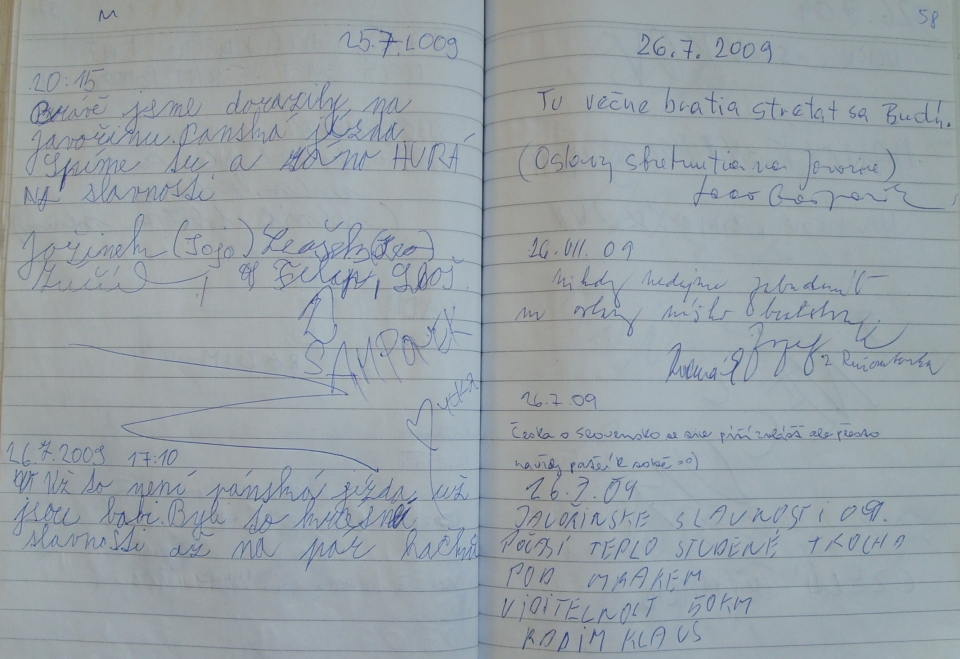 25.7.2009
20:15
Právě jsme dorazily na
Javořinu. Pánská jízda
Spíme tu a ráno HURÁ
NA slavnosti
Jožinek (Jojo) Leošek (Leo)
Filip, Loš
ŠAMPONEK
26.7.2009 17:10
Už to není pánská jízda, už
jsou babi. Byli to krásné
slavnosti až na pár hačků
58
26.7.2009
Tu večne bratia stretat sa Budú.
(Oslavy stretnutia na Javorine)
26.VII.09
nikdy nedajme zabudnúť
na oslavy nášho bratstva
z Ružomberka
26.7.09
Česko a Slovensko se sice píší zvlášť ale přesto
navždy patří k sobě =o)
26.7.09
JAVOŘINSKE SLAVNOSTI 09.
POČASÍ TEPLO STUDENĚ TROCHU
POD MRAKEM
VIDITELNOST 50KM
RADIM KLAUS